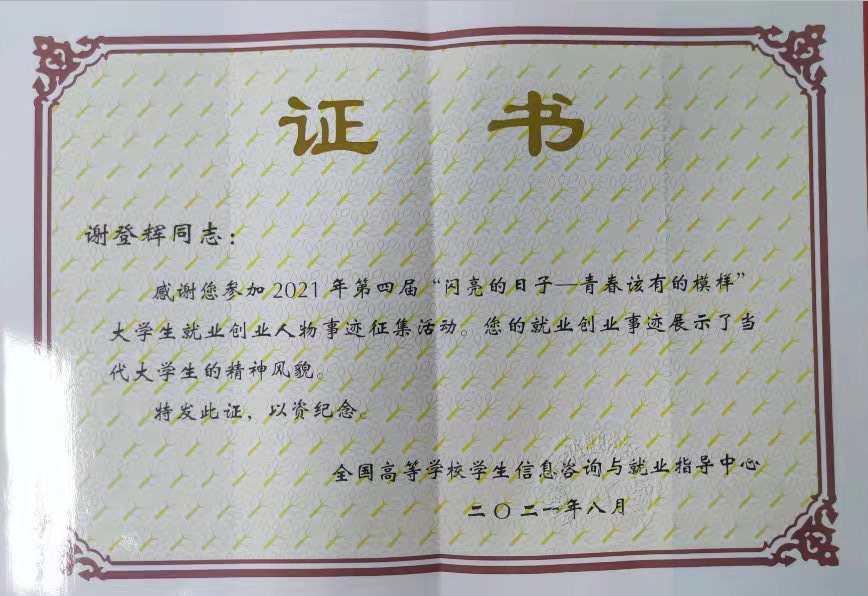 证书
谢登辉同志：
感谢您参加2021年第四届“闪亮的日子—青春该有的模样”
大学生就业创业人物事迹征集活动。您的就业创业事迹展示了当
代大学生的精神风貌。
特发此证，以资纪念。
全国高等学校学生信息咨询与就业指导中心
二〇二一年八月